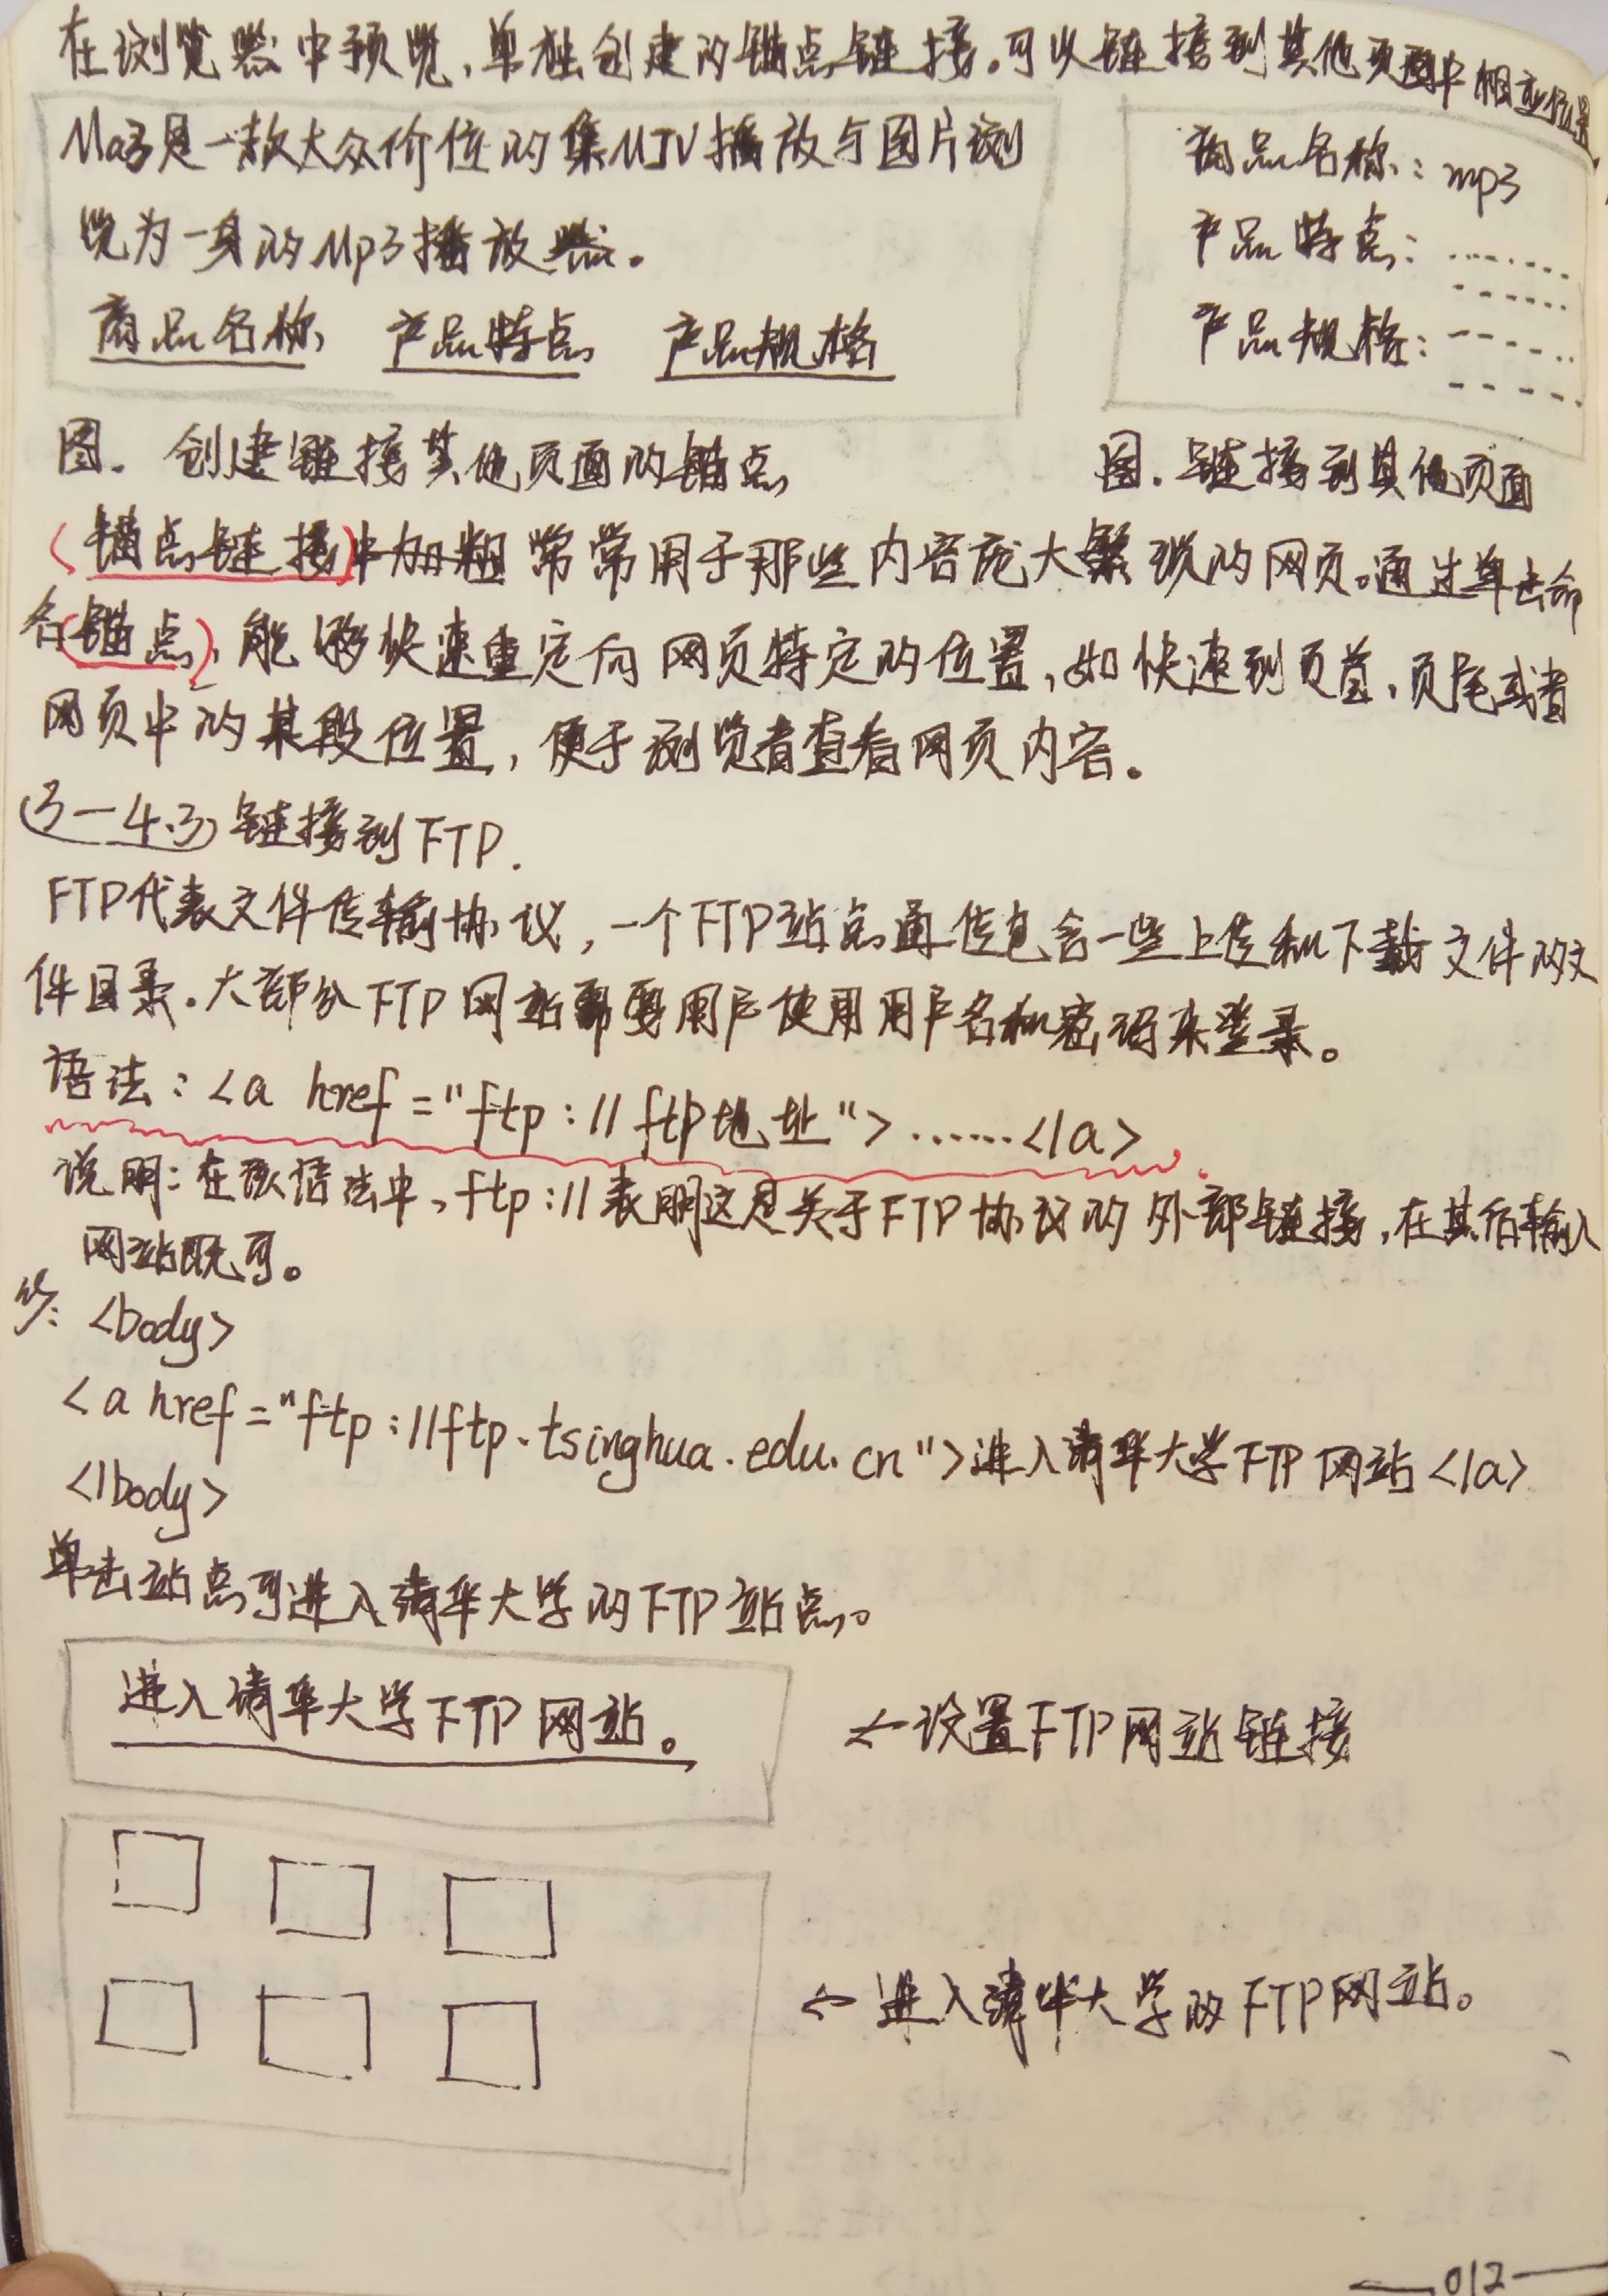 在浏览器中预览,单独创建的锚点链接。可以链接到其他页面中相应位置
Ma3是一款大众价位的集MTV播放与图片浏
览为一身的Mp3播放器。
商品名称 产品特点 产品规格
商品名称:mp3
产品特点:.......
......
产品规格:-----..
-----
图. 创建链接其他页面的锚点
图. 链接到其他页面
(锚点链接)中加粗常常用于那些内容庞大繁琐的网页。通过单击命
名(锚点),能够快速重定向网页特定的位置,如快速到页首,页尾或者
网页中的某段位置,便于浏览者查看网页内容。
(3-4.3)链接到FTP.
FTP代表文件传输协议,一个FTP站点通传包含一些上传和下载文件的文
件目录。大部分FTP网站都要用户使用用户名和密码来登录。
语法:<a href="ftp://ftp地址">......</a>
说明:在该语法中,ftp://表明这是关于FTP协议的外部链接,在其后输入
网站既可。
<body>
<a href="ftp://ftp.tsinghua.edu.cn">进入清华大学FTP网站</a>
</body>
单击站点可进入清华大学的FTP站点。
进入清华大学FTP网站。
←设置FTP网站链接
←进入清华大学的FTP网站。
012